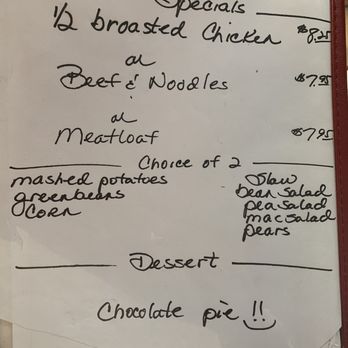 Specials
1/2 broasted Chicken $8.25
or
Beef & Noodles $7.95
or
Meatloaf $7.95
Choice of 2
mashed potatoes
greenbeans
Corn
Slaw
bean salad
pea salad
mac salad
pears
Dessert
Chocolate pie !!